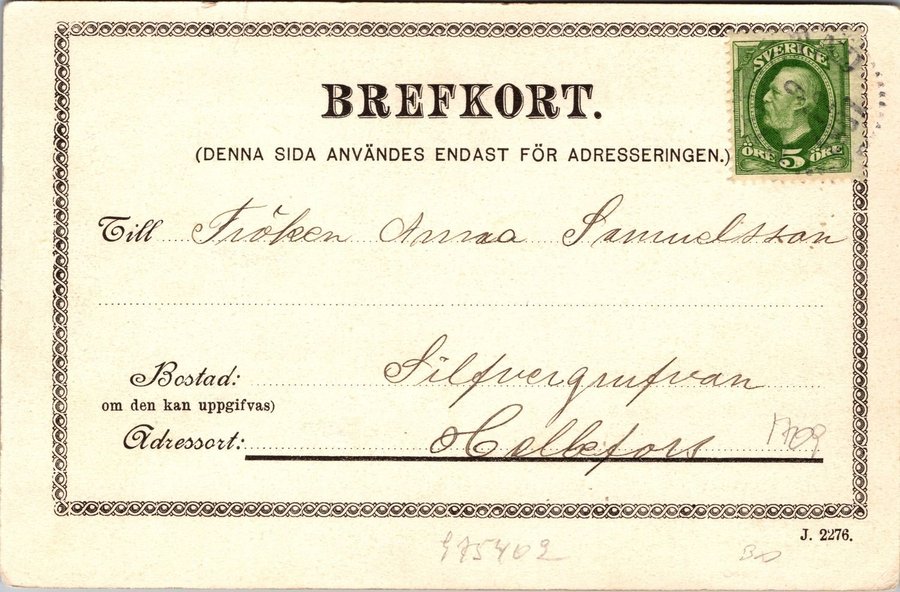 BREFKORT.
(DENNA SIDA ANVÄNDES ENDAST FÖR ADRESSERINGEN.)
SVERIGE
ÖRE 5 ÖRE
Till Fröken Anna Samuelsson
Bostad: Silfvergrufvan
om den kan uppgifvas)
Adressort: Hellefors
J. 2276.
975402